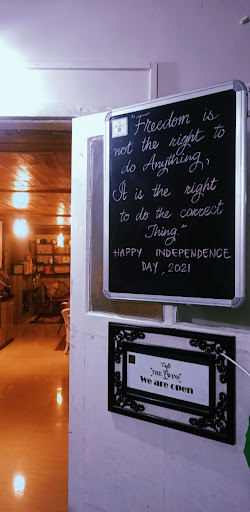 "Freedom is
not the right to
do Anything,
It is the right
to do the correct
Thing."
HAPPY INDEPENDENCE
DAY, 2021
Cafe
"THE TWINS"
We are open